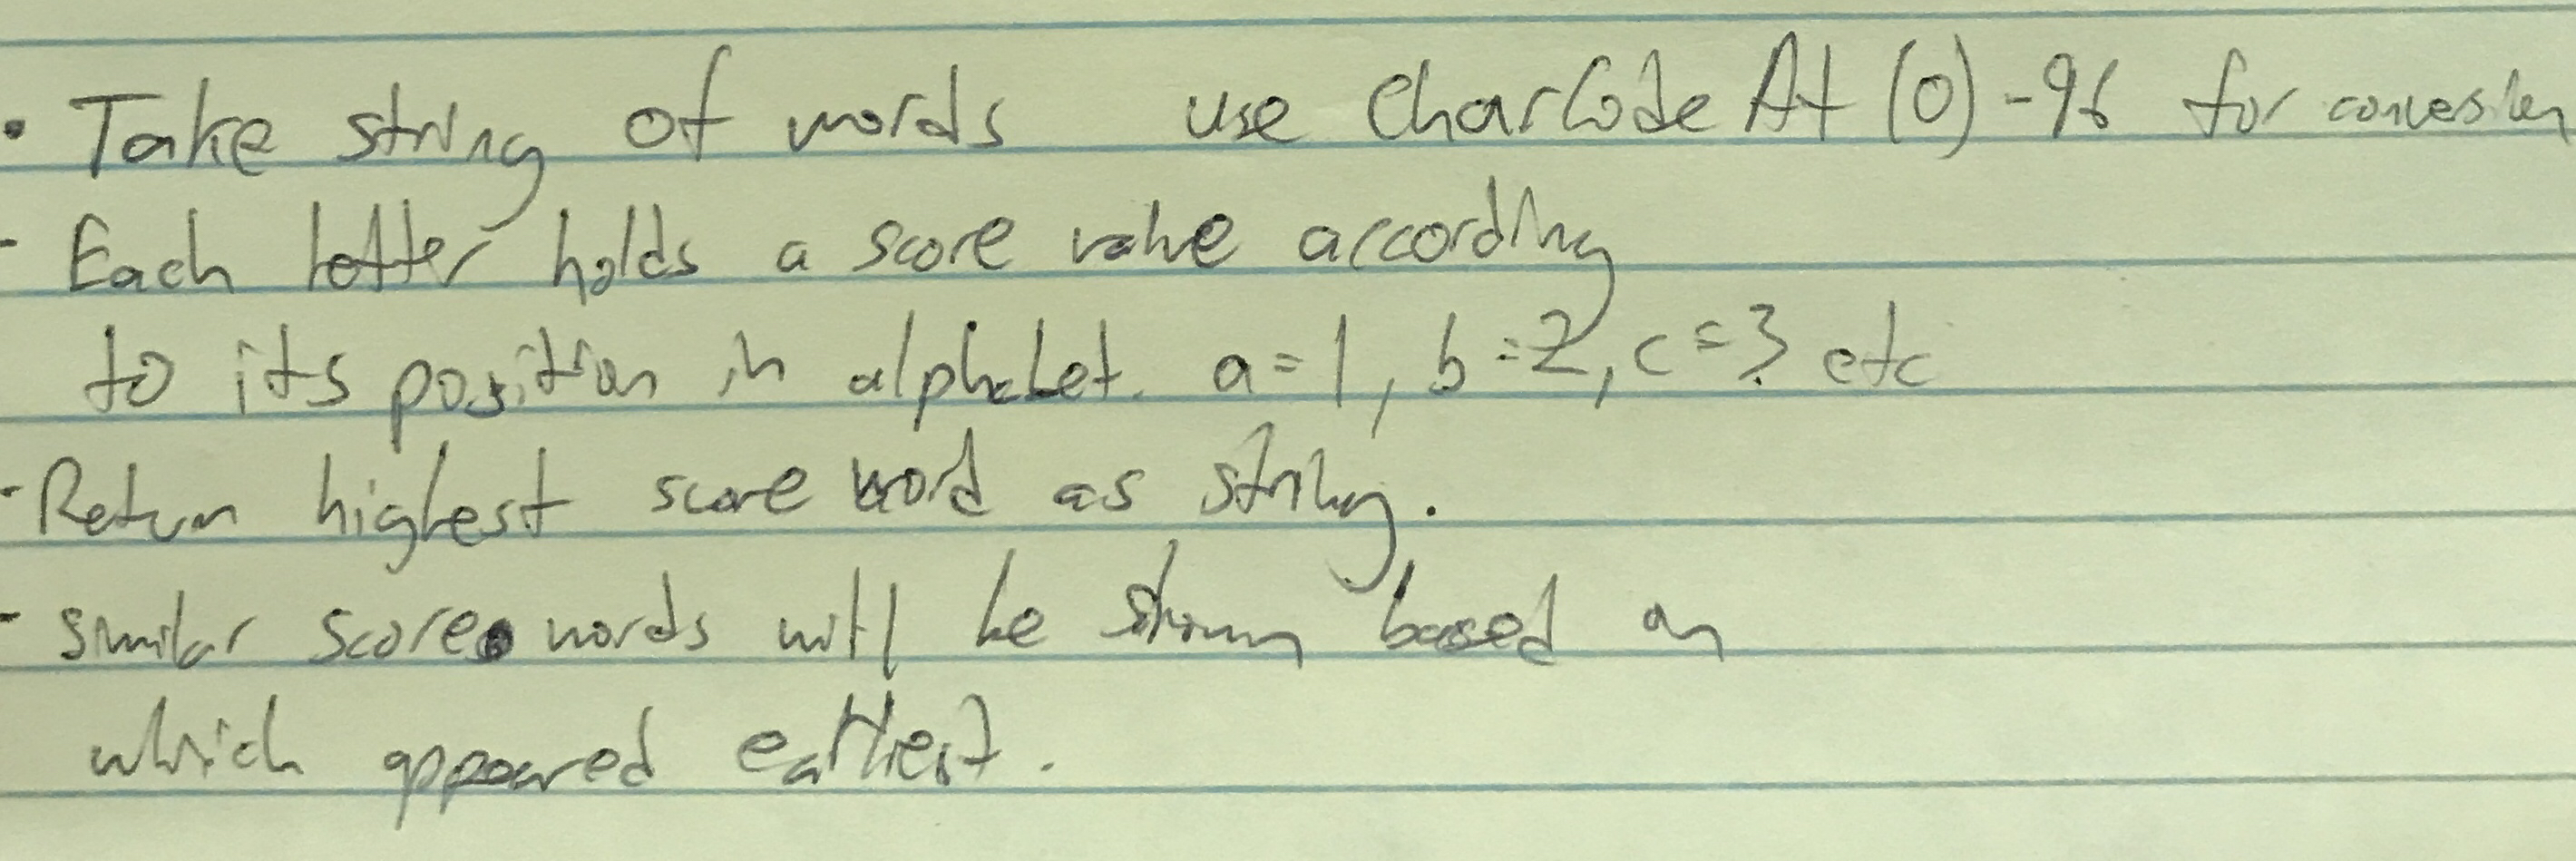 • Take string of words use CharCodeAt(0)-96 for conversion
- Each letter holds a score value according
to its position in alphabet. a=1, b=2, c=3 etc
- Return highest score word as string.
- similar score words will be shown based on
which appeared earliest.